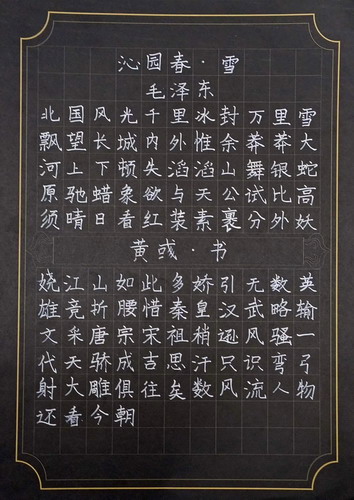 沁园春·雪
毛泽东
北国风光千里冰封万里雪
飘望长城内外惟余莽莽大
河上下顿失滔滔山舞银蛇
原驰蜡象欲与天公试比高
须晴日看红装素裹分外妖
黄彧·书
娆江山如此多娇引无数英
雄竟折腰惜秦皇汉武略输
文采唐宗宋祖稍逊风骚一
代天骄成吉思汗只识弯弓
射大雕俱往矣数风流人物
还看今朝